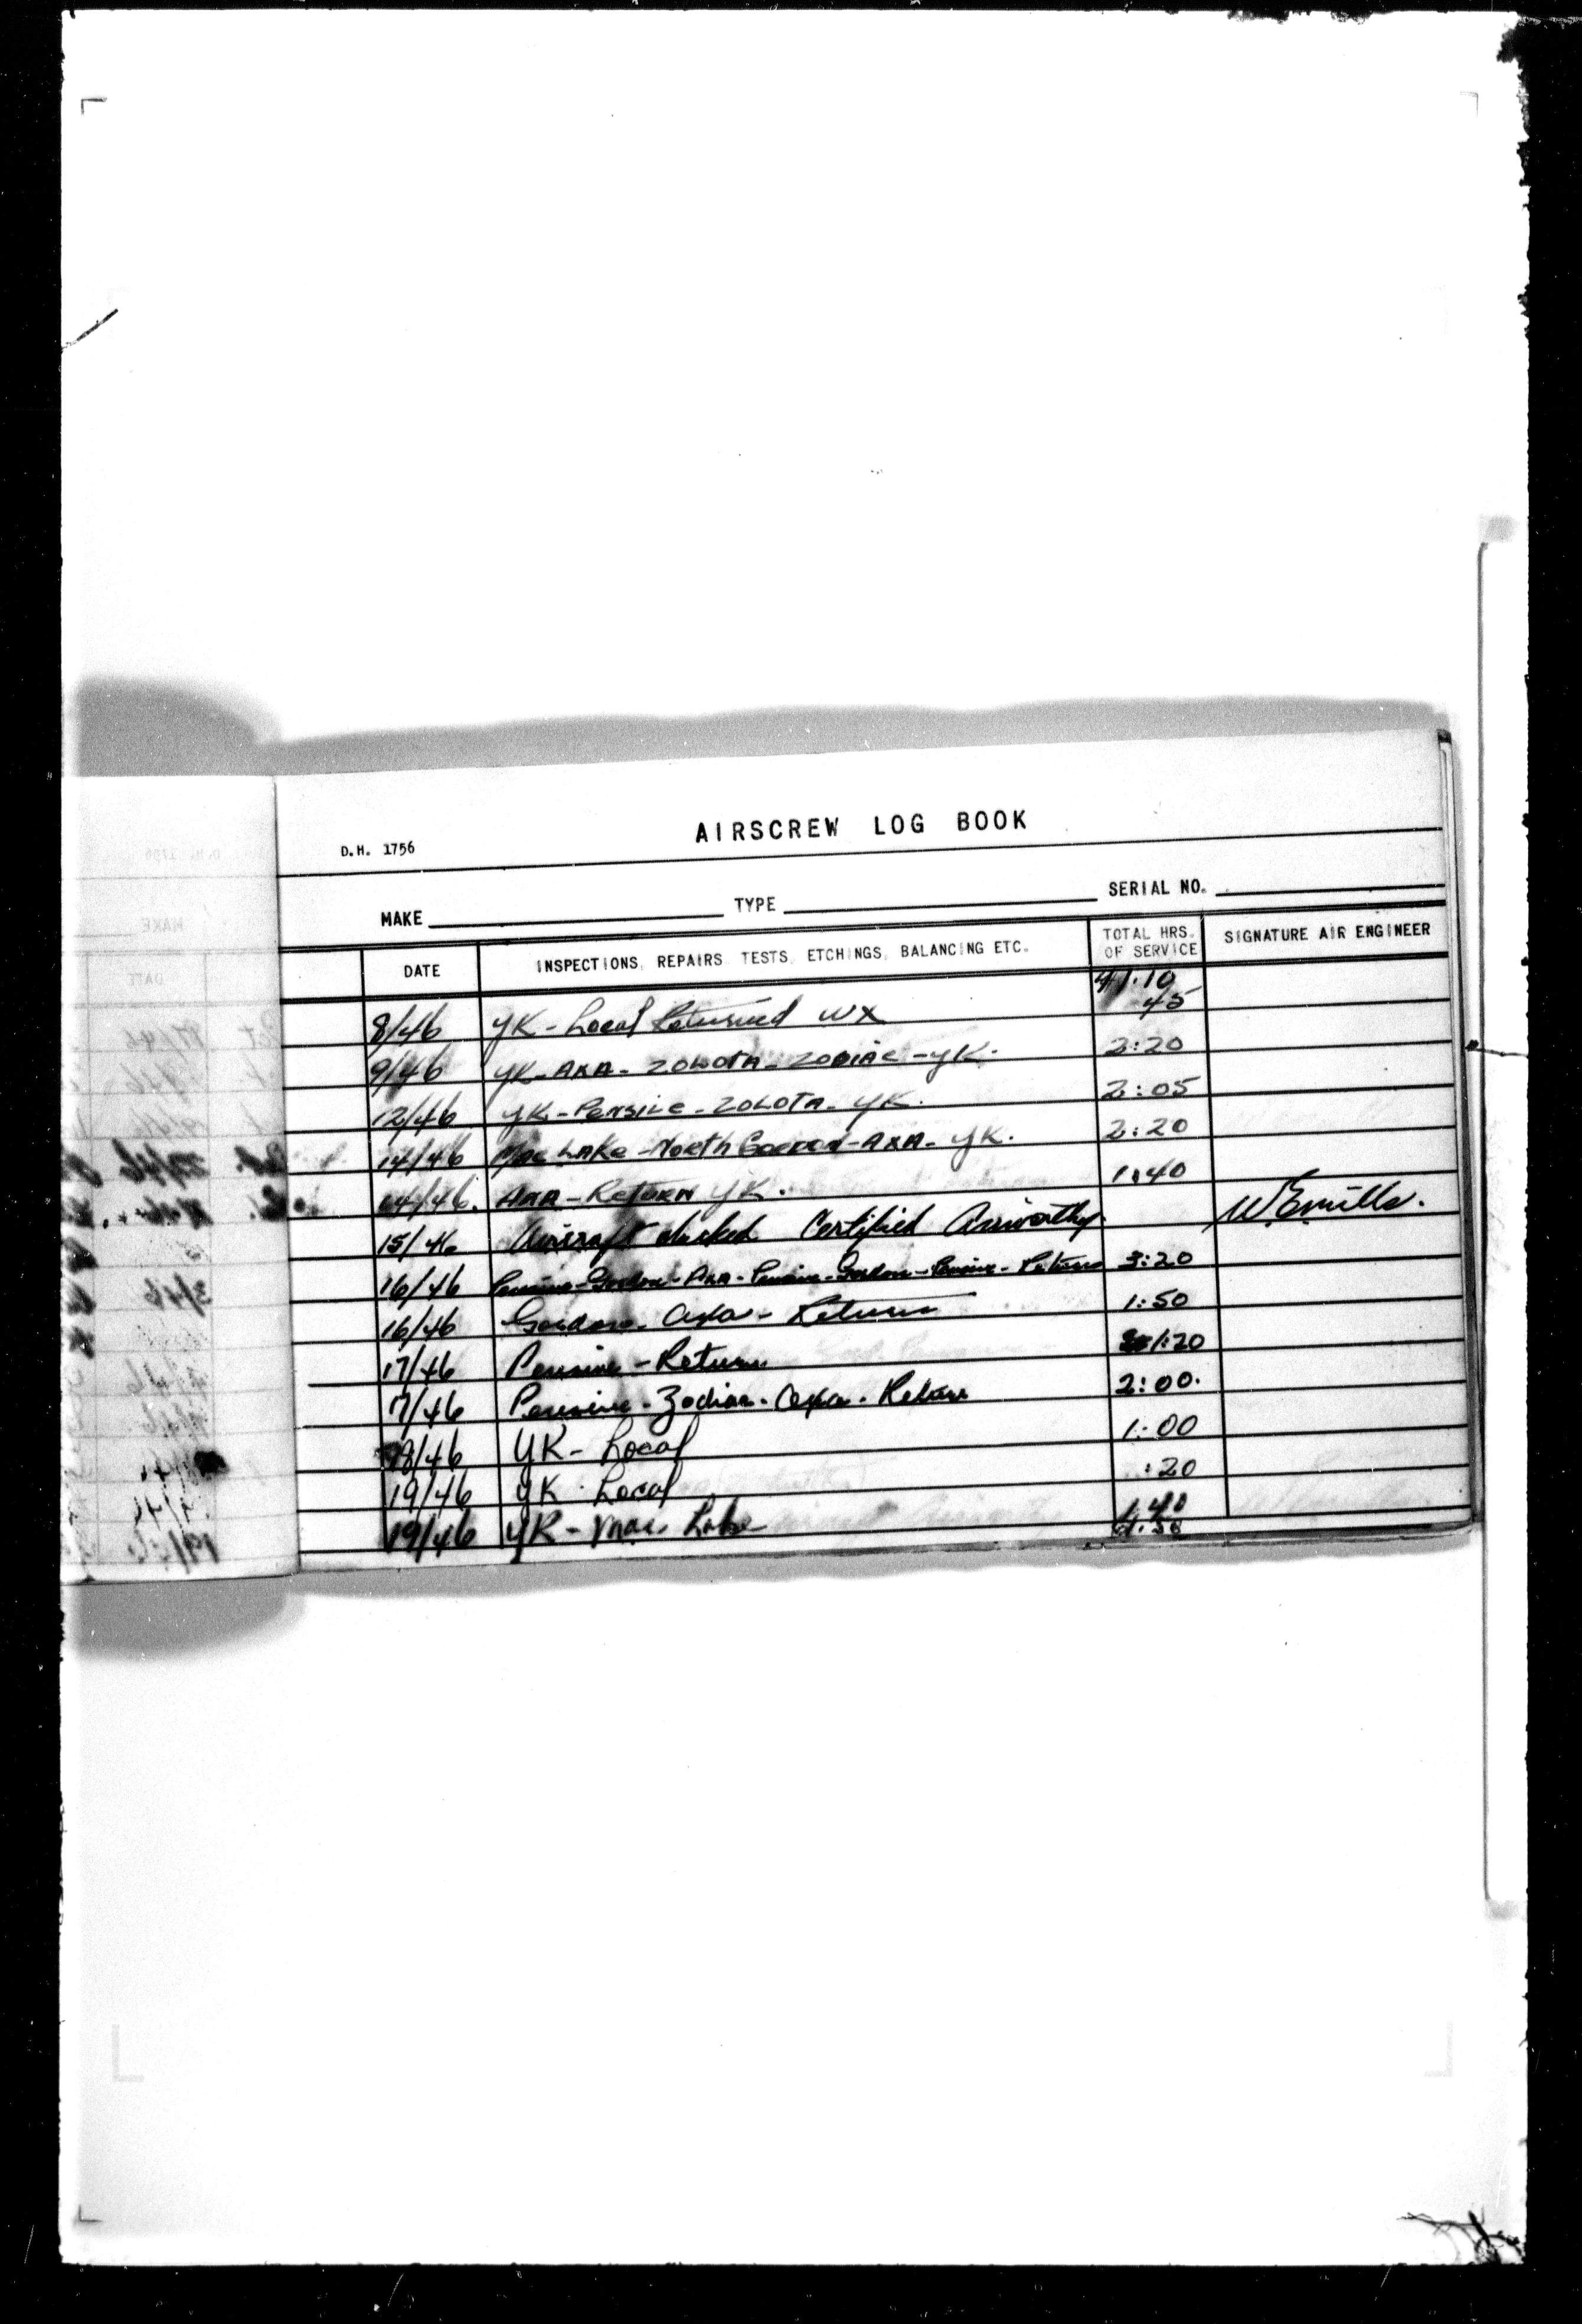 AIRSCREW LOG BOOK
D.H. 1756
MAKE TYPE SERIAL NO.
DATE INSPECTIONS, REPAIRS, TESTS, ETCHINGS, BALANCING ETC. TOTAL HRS. OF SERVICE SIGNATURE AIR ENGINEER
41.10
8/46 YK - Local Returned WX 45
9/46 YK - AXA - ZOLOTA - ZODIAC - YK. 2:20
12/46 YK - Pensive - ZOLOTA - YK. 2:05
14/46 Mac LAKe - North Gordon - AXA - YK. 2:20
14/46. AXA - Return YK. 1:40
15/46 Aircraft checked Certified Airworthy. W.E. Mills.
16/46 Pensive - Gordon - AXA - Pensive - Gordon - Pensive - Return 3:20
16/46 Gordon - Axa - Return 1:50
17/46 Pensive - Return 1:20
17/46 Pensive - Zodiac - Axa - Return 2:00.
18/46 YK - Local 1:00
19/46 YK - Local :20
19/46 YK - Mac Lake 1:40